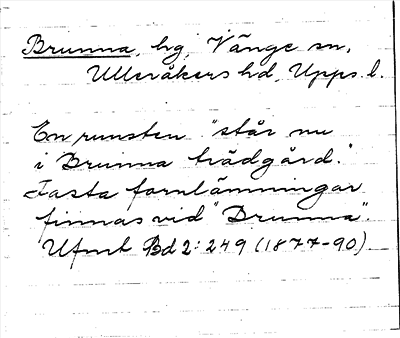 Brunna, hg, Vänge sn,
Ulleråkers hd, Upps. l.
En runsten "står nu
i Brunna trädgård."
Fasta fornlämningar
finnas vid "Brunna".
Ufmt Bd 2: 249 (1877-90)